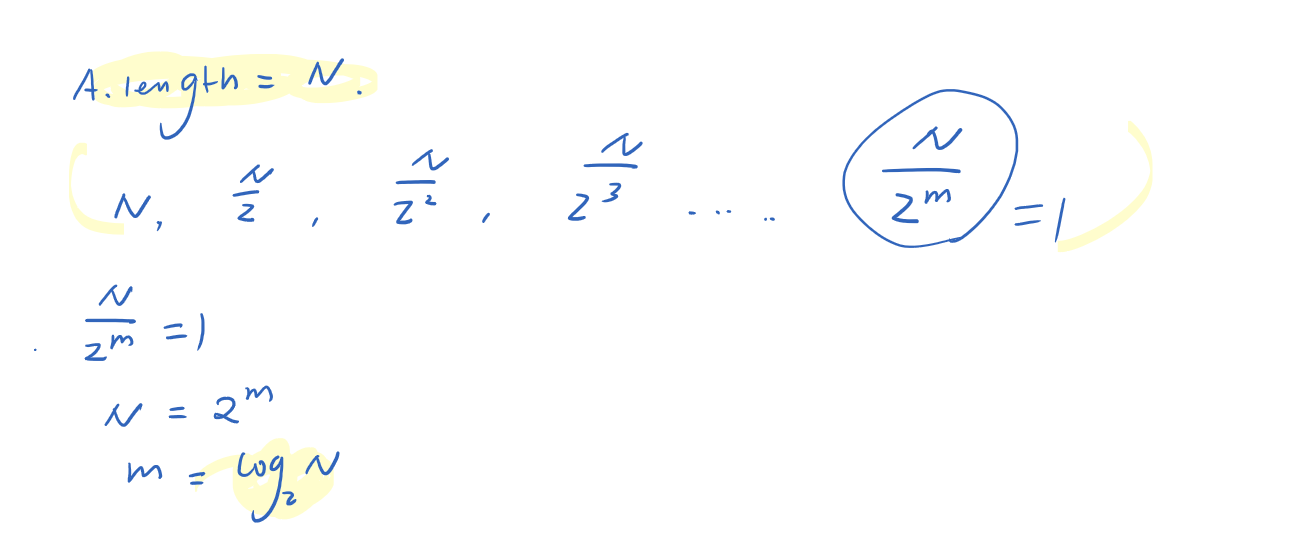 A.length = N.
N, N/2, N/2², N/2³ ..... N/2ᵐ = 1
N/2ᵐ = 1
N = 2ᵐ
m = log₂ N